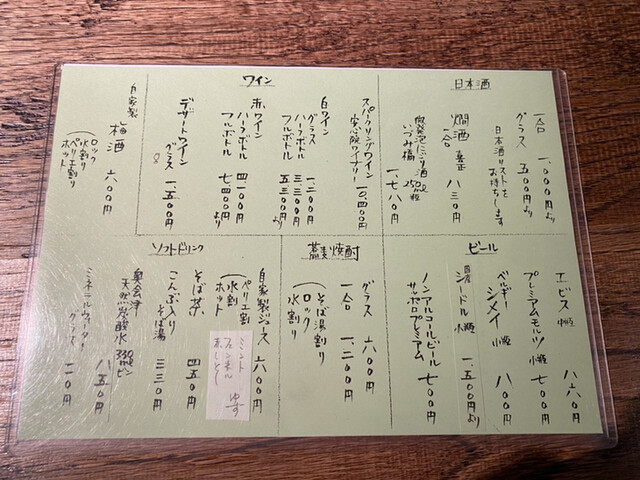 日本酒
一合 一、〇〇〇円より
グラス 五〇〇円より
日本酒リストを
お持ちします
燗酒
一合 八三〇円
微発泡にごり酒
いづみ橋 250ml瓶 一、七八〇円
ワイン
スパークリングワイン
安心院ワイナリー 一〇四〇〇円
白ワイン
グラス 一、二〇〇円
ハーフボトル 三三〇〇円
フルボトル 五三〇〇円より
赤ワイン
ハーフボトル 四一〇〇円
フルボトル 七四〇〇円より
デザートワイン
グラス 一、五〇〇円
自家製
梅酒 六〇〇円
(ロック
水割り
ペリエ割り
ホット)
ビール
エビス 中瓶 八六〇円
プレミアムモルツ 小瓶 七〇〇円
ベルギー
シメイ 小瓶 八〇〇円
国産
シードル 小瓶 一、五〇〇円より
ノンアルコールビール
サッポロプレミアム 七〇〇円
蕎麦焼酎
グラス 六〇〇円
一合 一、二〇〇円
(そば湯割り
ロック
水割り)
ソフトドリンク
自家製ジュース 六〇〇円
(ペリエ割
水割
ホット)
ミント
フェンネル ゆず
そば茶 四五〇円
こんぶ入り
そば湯 三三〇円
奥会津
天然炭酸水 330mlビン 八五〇円
ミネラルウォーター
グラス 二一〇円